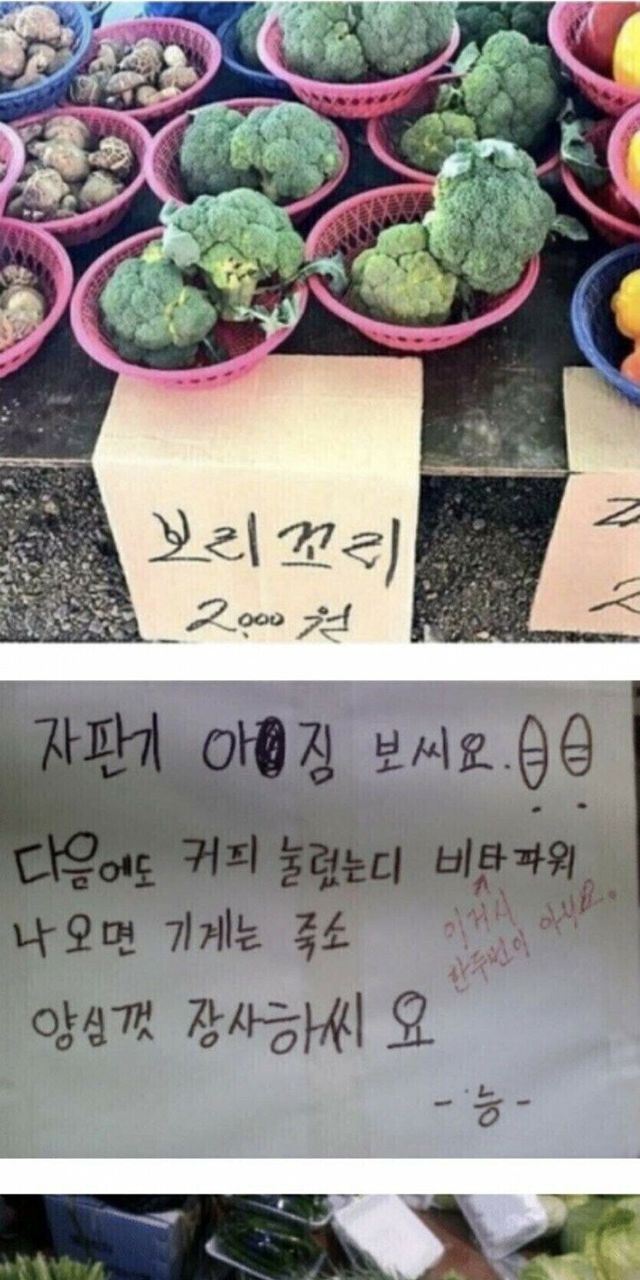 보리꼬리
2,000원
자판기 아짐 보씨요.
다음에도 커피 눌렀는디 비타파워
나오면 기계는 죽소
이거시
한두번이 아니요.
양심껏 장사하씨요
-능-